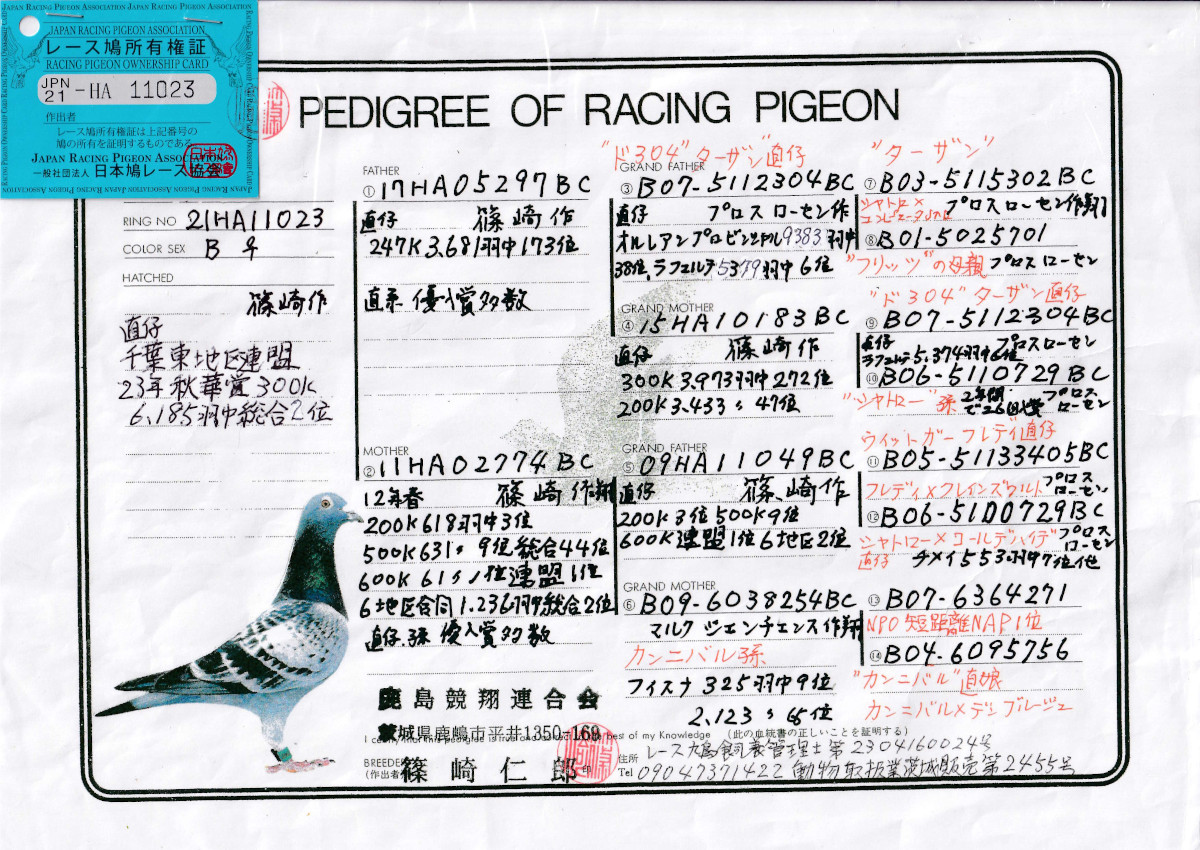 JAPAN RACING PIGEON ASSOCIATION JAPAN RACING PIGEON ASSOCIATION
JAPAN RACING PIGEON ASSOCIATION
レース鳩所有権証
RACING PIGEON OWNERSHIP CARD
JPN 21 -HA 11023
作出者
レース鳩所有権証は上記番号の
鳩の所有を証明するものである。
JAPAN RACING PIGEON ASSOCIATION
一般社団法人 日本鳩レース協会
PEDIGREE OF RACING PIGEON
RING NO 21HA11023
COLOR SEX B ♀
HATCHED
篠崎作
直仔
千葉東地区連盟
23年秋華賞300K
6,185羽中総合2位
FATHER
① 17HA05297BC
直仔 篠崎作
247K3.681羽中173位
直系 優入賞多数
MOTHER
② 11HA02774BC
12年春 篠崎作翔
200K618羽中3位
500K631〃 9位総合44位
600K 61〃 1位連盟1位
6地区合同1.236羽中総合2位
直仔.孫 優入賞多数
"ド304"ターザン直仔
GRAND FATHER
③ B07-5112304BC
直仔 ブロスローセン作
オルレアンプロビンシャル9383羽中
38位,ラフェルテ5379羽中6位
GRAND MOTHER
④ 15HA10183BC
直仔 篠崎作
300K3.973羽中272位
200K3.433〃 47位
GRAND FATHER
⑤ 09HA11049BC
直仔 篠崎作
200K3位500K9位
600K連盟1位6地区2位
GRAND MOTHER
⑥ B09-6038254BC
マルク ジェンチェンス作翔
カンニバル孫
フィスナ325羽中9位
2,123〃65位
"ターザン"
⑦ B03-5115302BC
シャトロ×
ブロスローセン作翔
⑧ B01-5025701
"フリッツ"の母親 ブロスローセン
"ド304"ターザン直仔
⑨ B07-5112304BC
直仔 ブロスローセン
ラフェルテ5.374羽中6位
⑩ B06-5110729BC
"シャトロー"孫 2年間で26回入賞 ブロスローセン
ウィットガーフレディ直仔
⑪ B05-51133405BC
フレディ×クレインズワルト ブロスローセン
⑫ B06-51D0729BC
シャトロー×コールデハイデ ブロスローセン
直仔 チメイ553羽中7位他
⑬ B07-6364271
NPO短距離NAP1位
⑭ B04-6095756
"カンニバル"直娘
カンニバル×デンブルージュ
鹿島競翔連合会
茨城県鹿嶋市平井1350-169
best of my Knowledge (此の血統書の正しいことを証明する)
BREEDER
(作出者) 篠崎仁郎 印
住所 レース鳩飼養管理士第2304160024号
Tel 09047371422 動物取扱業茨城販売第2455号